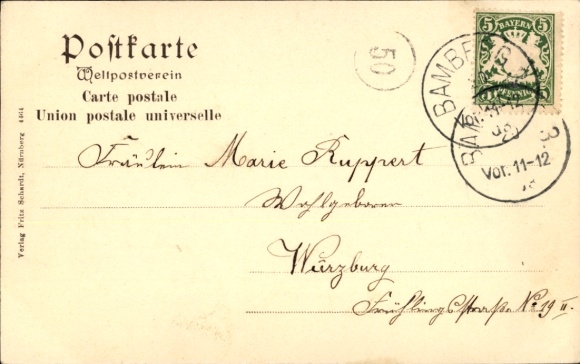 Postkarte
Weltpostverein
Carte postale
Union postale universelle
50
5 BAYERN 5
PFENNIG
BAMBERG
Vor. 11-12
BAM
Vor. 11-12
Fräulein Marie Ruppert
Wohlgeboren
Würzburg
Frühlingsstraße No. 19 II.
Verlag Fritz Schardt, Nürnberg